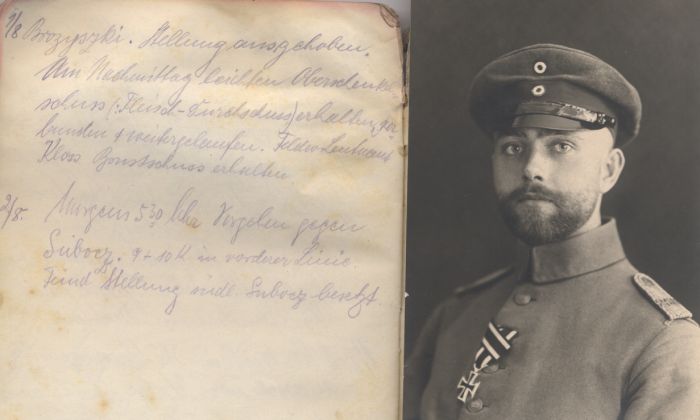 1/8 Brozyszki. Stellung ausgehoben.
Am Nachmittag leichten Oberschenkel-
schuss (: Fleisch-Durchschuss) erhalten, ver
bunden + weitergelaufen. Feldw. Leutnant
Kloss Brustschuss erhalten
2/8. Morgens 5 30 Uhr Vorgehen gegen
Subocz. 9 + 10 K in vorderer Linie.
Feind Stellung südl. Subocz besetzt.